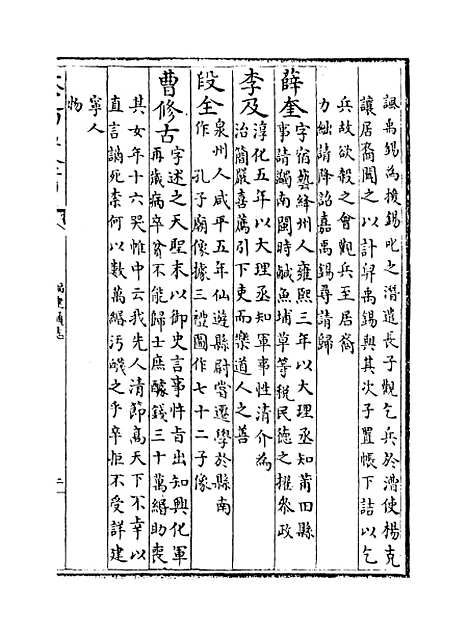 諷禹錫為援錫叱之潛遣長子觀乞兵於漕使楊克
讓居裔聞之以計舁禹錫與其次子置帳下詰以乞
兵故欲殺之會觀兵至居裔
力絀請降詔嘉禹錫尋請歸
薛奎
字宿藝絳州人雍熙三年以大理丞知莆田縣
事請蠲南閩時鹹魚埔草等税民德之擢叅政
李及
淳化五年以大理丞知軍事性清介為
治簡嚴喜薦引下吏而樂道人之善
段全
泉州人咸平五年仙遊縣尉嘗遷學於縣南
作 孔子廟像據三禮圖作七十二子像
曹修古
字述之天聖末以御史言事忤旨出知興化軍
再歲病卒貧不能歸士庶醵錢三十萬緡助喪
其女年十六哭帷中云我先人清節髙天下不幸以
直言謫死柰何以數萬緡汚衊之乎卒拒不受詳建
寧人
物
二